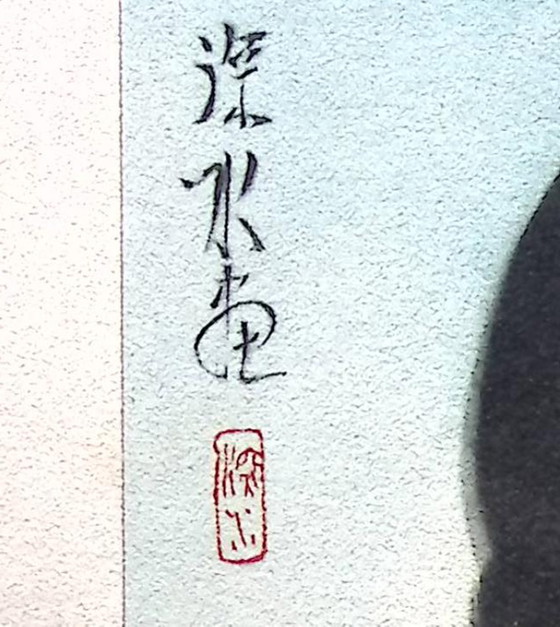 深水画
深水